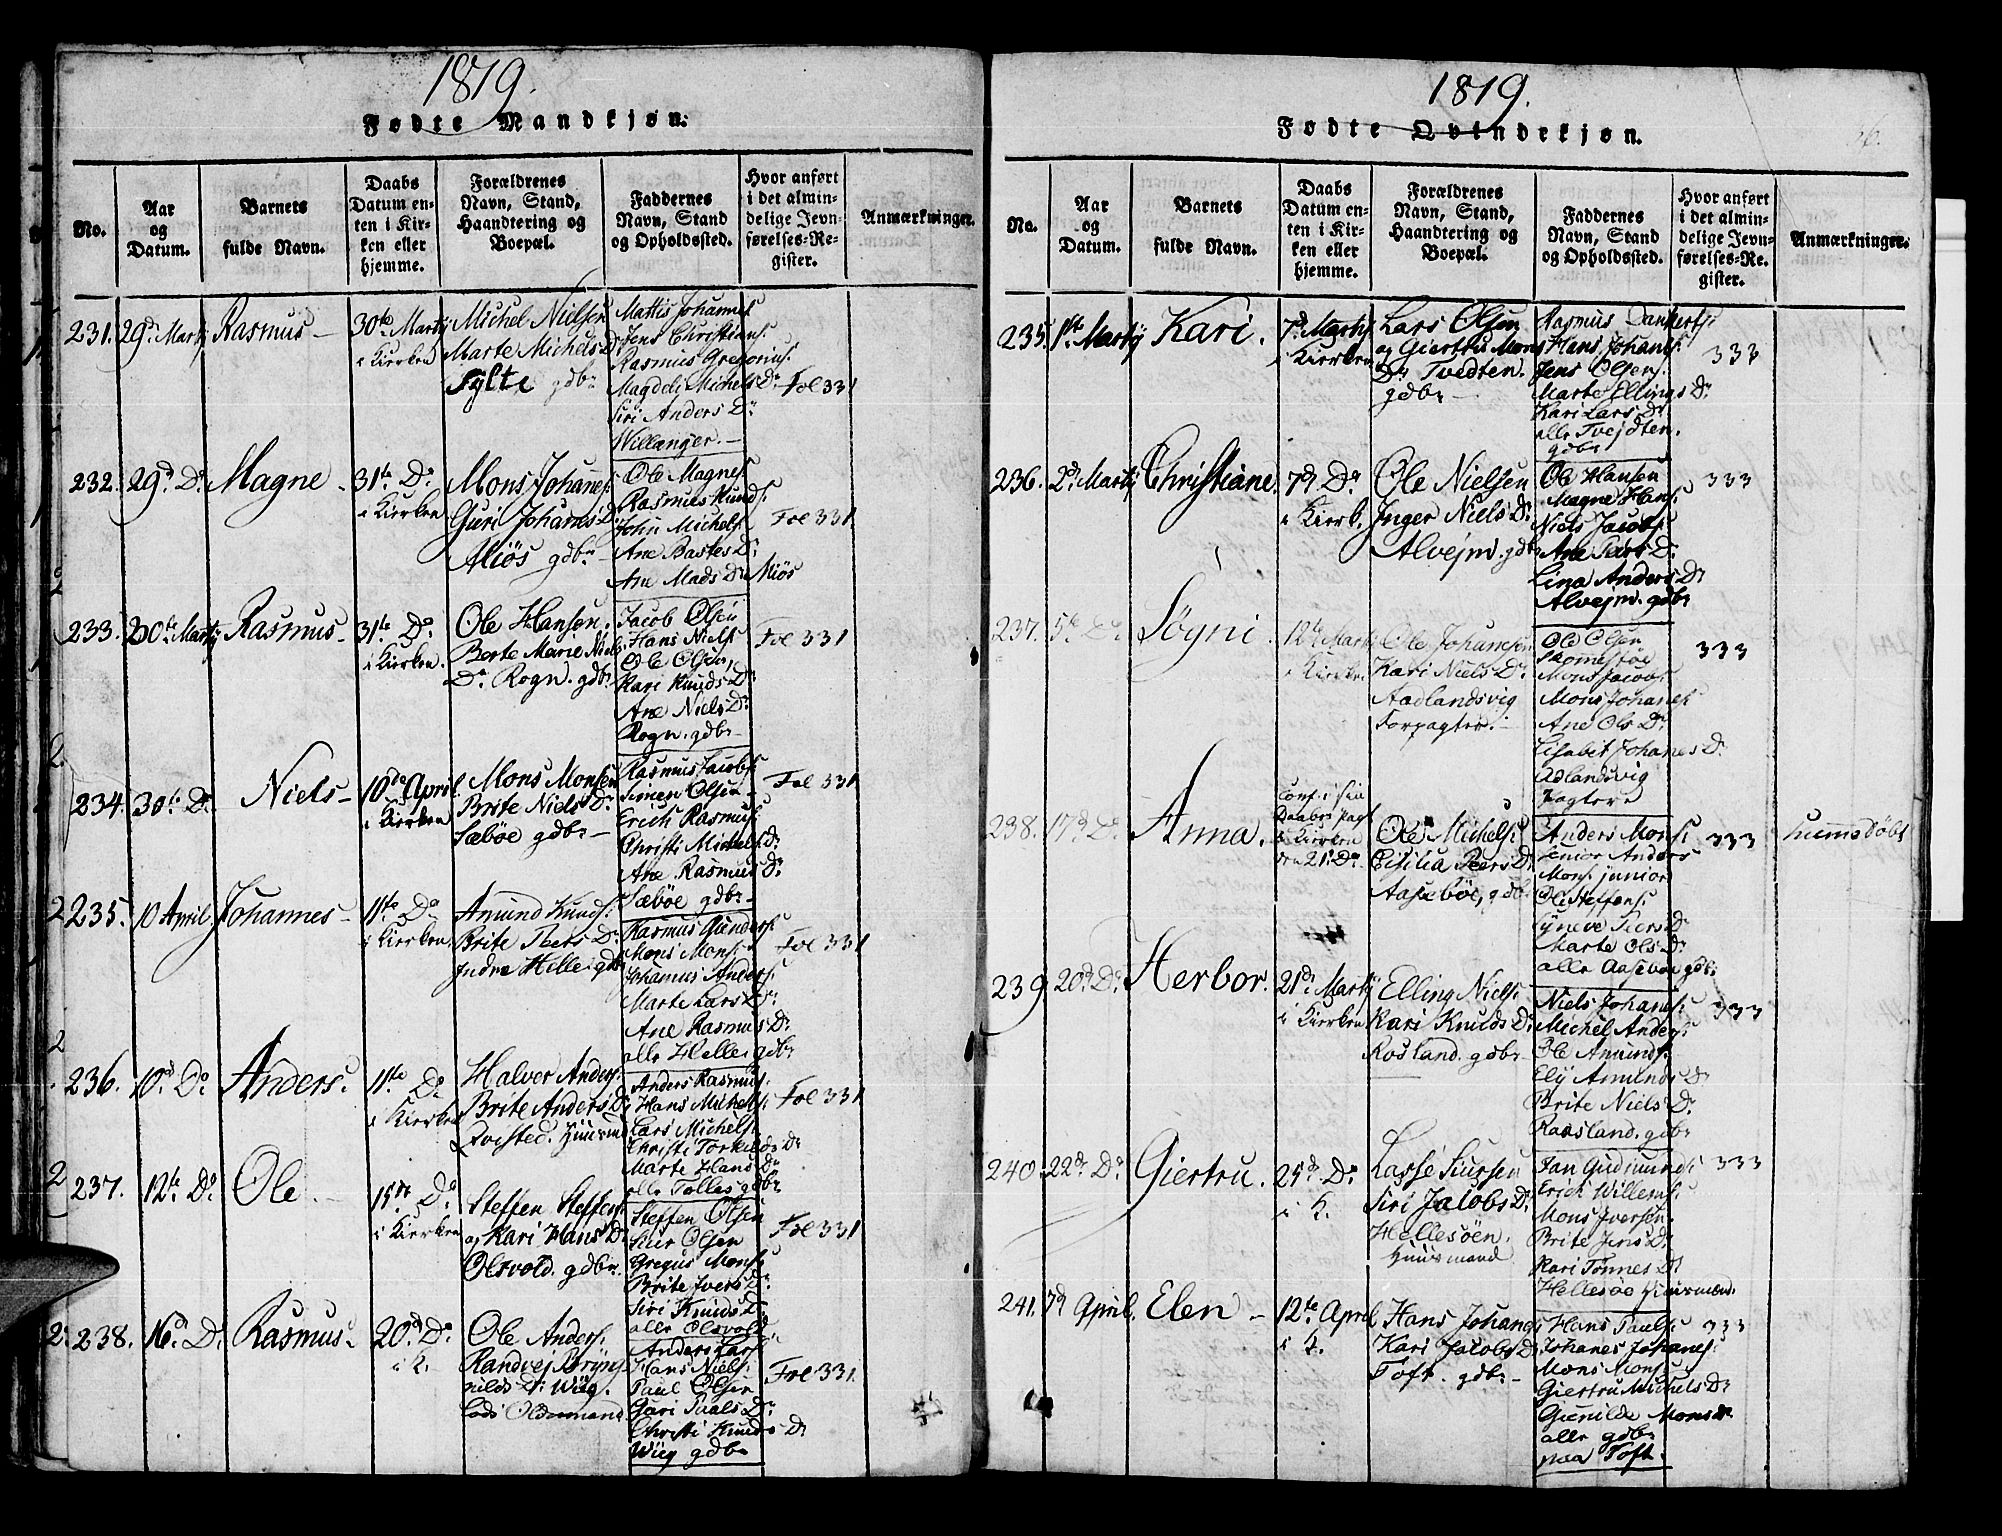 1819.
Fødte Mandkjøn.
No.
Aar
og
Datum.
Barnets
fulde Navn.
Daabs
Datum en-
ten i Kir-
ken eller
hjemme.
Forældrenes
Navn, Stand,
Haandtering og
Boepæl.
Faddernes
Navn, Stand
og Opholdssted.
Hvor anført
i det almin-
delige Jevn-
førelses-Re-
gister.
Anmærkninger.
231. 29d Martij Rasmus
30te Martij
i Kirken
Michel Nielsen
Marte Michels Dr
Sylte gdbr
Mattis Johannes
Jens Christians.
Rasmus Gregorius.
Magdeli Michels Dr
Siri Anders Dr
Villanger.
Fol 331
232. 29d Do Magne
31te Do
i Kirken
Mons Johanes.
Guri Johanes Dr
Miös gdbr
Ole Magnes.
Rasmus Knuds.
John Michels.
Ane Bastes Dr
Ane Mads Dr Miös
Fol 331
233. 30te Martij Rasmus
31te Do
i Kirken.
Ole Hansøn.
Berte Marie Niels
Dr Rogn. gdbr
Jacob Olsen
Hans Niels.
Ole Olsen,
Kari Knuds Dr
Ane Niels Dr
Rogn. gdbr
Fol 331
234. 30te Do Niels
10de April.
i Kirken
Mons Monsen
Brite Niels Dr
Sæbøe gdbr
Rasmus Jacobs.
Simen Olsen
Erich Rasmus.
Christi Michels Dr
Ane Rasmus Dr
Sæbøe gdbr
Fol 331
235. 10 April Johannes
11te Do
i Kirken.
Amund Knuds.
Brite Peers Dr
Indre Helle gdbr
Rasmus Gunders.
Mons Mons.
Johannes Anders.
Marte Lars Dr
Ane Rasmus Dr
alle Helle gdbr
Fol 331
236. 10d Do Anders
11te Do
i Kirken
Halver Anders.
Brite Anders Dr
Qvisted. Huusmd
Anders Rasmus.
Hans Michels.
Lars Michels.
Christi Torkilds Dr
Marte Hans Dr
alle Tolles gdbr
Fol 331
237. 12te Do Ole
15de Do
i Kirken
Steffen Steffens.
og Kari Hans Dr
Olsvold. gdbr
Steffen Olsen
Siur Olsen
Gregus Mons.
Brite Ivers Dr
Siri Knuds Dr
alle Olsvold
Fol 331
238. 16d Do Rasmus
20d Do
i K.
Ole Anders.
Randvej Bryng-
nilds Dr Wiig.
Lods Oldermand
Anders Lars.
Hans Niels.
Paul Olsen
Gari Paals Dr
Christi Knuds Dr
Wiig gdbr
Fol 331.
1819.
Fødte Qvindekjøn.
36.
No.
Aar
og
Datum.
Barnets
fulde Navn.
Daabs
Datum en-
ten i Kir-
ken eller
hjemme.
Forældrenes
Navn, Stand,
Haandtering og
Boepæl.
Faddernes
Navn, Stand
og Opholdssted.
Hvor anført
i det almin-
delige Jevn-
førelses-Re-
gister.
Anmærkninger.
235. 1te Martij Kari.
7d Martij
i Kirken
Lars Olsen
og Giertru Mons
Dr Tvedten.
gdbr
Rasmus Dankerts.
Hans Johanes.
Jens Olsen.
Marte Ellings Dr
Kari Lars Dr
alle Tvejdten.
gdbr
333
236. 2d Martij Christiane.
7d Do
i Kirk.
Ole Nielsen
Inger Niels Dr
Alvejm. gdbr
Ole Hansen
Magne Hans.
Niels Jacobs.
Ane Siurs Dr
Lina Anders Dr
Alvejm. gdbr
333
237. 5te Do Søgni.
12te Martij
i Kirken
Ole Johanesen
Kari Niels Dr
Aadlandsvig
Forpagter.
Ole Olsen
Skomestøe
Mons Jacobs.
Mons Johanes.
Ane Ols Dr
Lisabet Johanes Dr
Adlandsvig
Pagtere
333
238. 17d Do Anna.
Conf. i sin
Daabs pagt
i Kirken
den 21de Do
Ole Michels.
Cicilia Peers Dr
Aasebøe, gdbr
Anders Mons.
senior Anders
Mons. junior
Ole Steffens.
Syneve Peers Dr
Marte Ols Dr
alle Aasebøe gdbr
333
hiemedøbt
239. 20d Do Herbor.
21d Martij
i Kirken
Elling Niels.
Kari Knuds Dr
Rosland. gdbr
Niels Johanes.
Michel Anders.
Ole Amunds.
Elij Amunds Dr
Brite Niels Dr
Raasland. gdbr
333
240. 22d Do Giertru.
25d Do
i K.
Lasse Siursen
Siri Jacobs Dr
Hellesöen.
Huusmand
Jan Gudmunds.
Erich Willems.
Mons Iversen.
Brite Jens Dr
Kari Tönnes Dr
Hellesöe Huusmænd
333
241. 7d April. Elen
12te April
i K.
Hans Johanes
Kari Jacobs Dr
Toft. gdbr
Hans Pauls.
Johanes Johanes.
Mons Mons.
Giertru Michels Dr
Gunilde Mons Dr
alle gdbr
paa Toft.
333